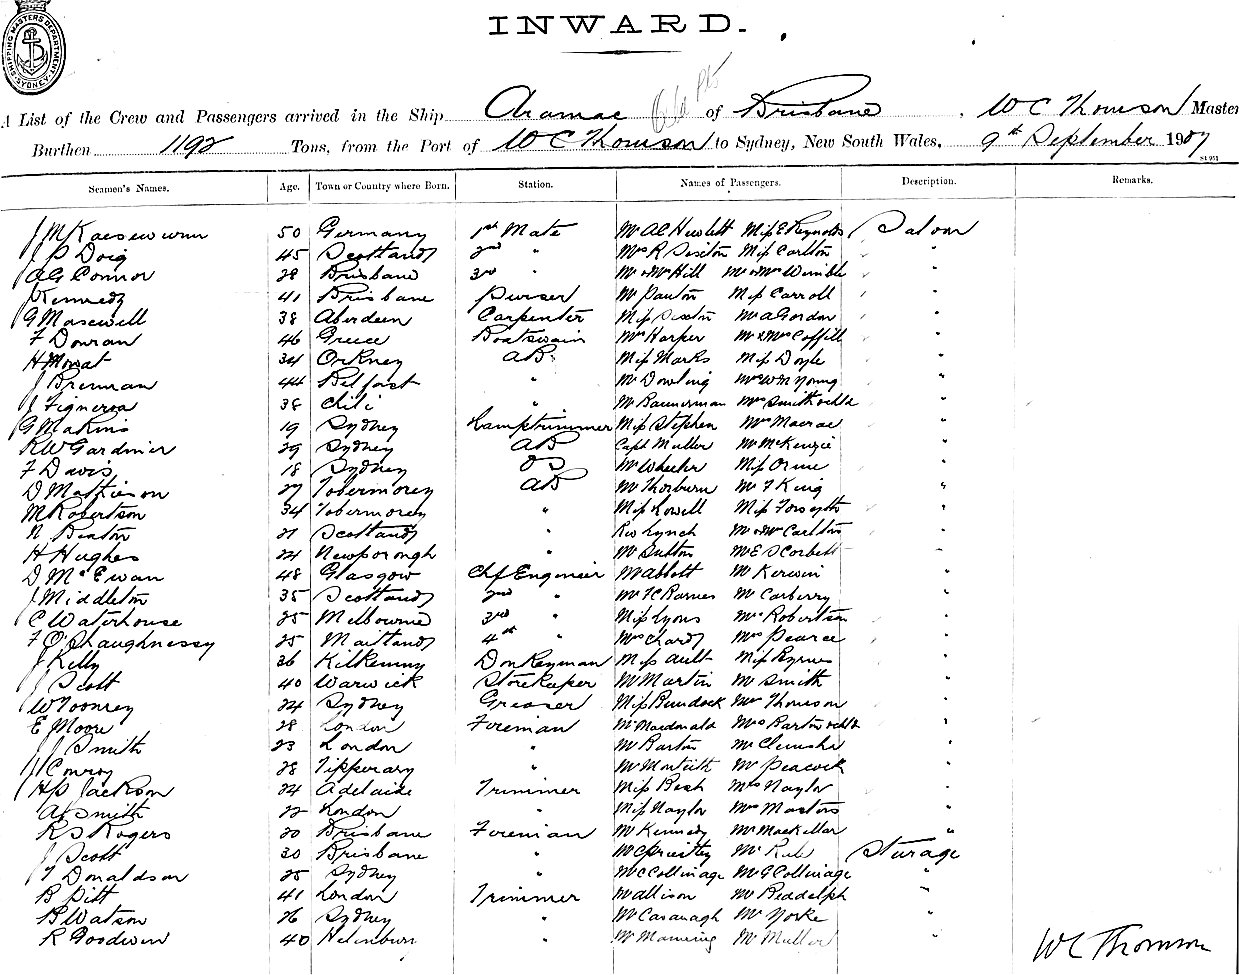 SHIPPING MASTERS DEPARTMENT SYDNEY
INWARD.
A List of the Crew and Passengers arrived in the Ship Aramac of Brisbane, W C Thomson Master
Burthen 1192 Tons, from the Port of W C Thomson to Sydney, New South Wales, 9th September 1907
Seamen's Names. Age. Town or Country where Born. Station. Names of Passengers. Description. Remarks.
50 Germany 1st Mate Mr A C Hewlett Miss E Reynolds Saloon
J P Doig 45 Scotland 2nd " Mrs R Sexton Miss Carlton "
A G Connor 28 Brisbane 3rd " Mr & Mrs Hill Mr & Mrs Wimble "
J Kennedy 41 Brisbane Purser Mr Panton Miss Carroll "
G Maxwell 38 Aberdeen Carpenter Miss Sexton Mr A Gordon "
F Dounan 46 Greece Boatswain Mrs Harper Mr & Mrs Coffill "
H Mowat 34 Orkney AB Miss Marks Miss Doyle "
J Brennan 44 Belfast " Mr Dowling Mr W M Young "
J Figueroa 38 Chili " Mr Bannerman Mrs Smith & child "
G Makins 19 Sydney Lamptrimmer Miss Stephen Mrs Macrae "
R W Gardnier 29 Sydney AB Capt Muller Mr McKenzie "
F Davis 18 Sydney OS Mr Wheeler Miss Orme "
D Mathieson 27 Tobermorey AB Mr Thorburn Mr F King "
M Robertson 34 Tobermorey " Miss Lowell Miss Forsyth "
N Beaton 21 Scotland " Rev Lynch Mr & Mrs Carlton "
H Hughes 24 Newborough " Mr Sutton Mr E S Corbett "
D McEwan 48 Glasgow Chf Engineer Mr Abbott Mr Kerwin "
J Middleton 35 Scotland 2nd " Mr F C Barnes Mr Carberry "
C Waterhouse 25 Melbourne 3rd " Miss Lyons Mr Robertson "
F O'Shaughnessy 25 Maitland 4th " Mrs Chard Mrs Pearce "
J Kelly 36 Kilkenny Donkeyman Miss Ault Miss Byrnes "
J Scott 40 Warwick Storekeeper Mr Martin Mr Smith "
W Toomey 24 Sydney Greaser Miss Burdock Mrs Thomson "
E Moore 28 London Foreman Mr Macdonald Mrs Barton & child "
J J Smith 23 London " Mr Barton Mr Clemisha "
J Conroy 28 Tipperary " Mr Monteith Mr Peacock "
H P Jackson 24 Adelaide Trimmer Miss Besh Mrs Naylor "
A Smith 22 London " Miss Naylor Mrs Masters "
R S Rogers 20 Brisbane Foreman Mr Kennedy Mr Mackellar "
J Scott 30 Brisbane " Mr C Priestley Mr Rule Sturage
T Donaldson 25 Sydney " Mr C Collinage Mr G Collinage "
B Pitt 41 London Trimmer Mr Allison Mr Reddelph "
B Watson 26 Sydney " Mr Cavanagh Mr Yorke "
R Goodwin 40 " Mr Manning Mr Muller "
W C Thomson